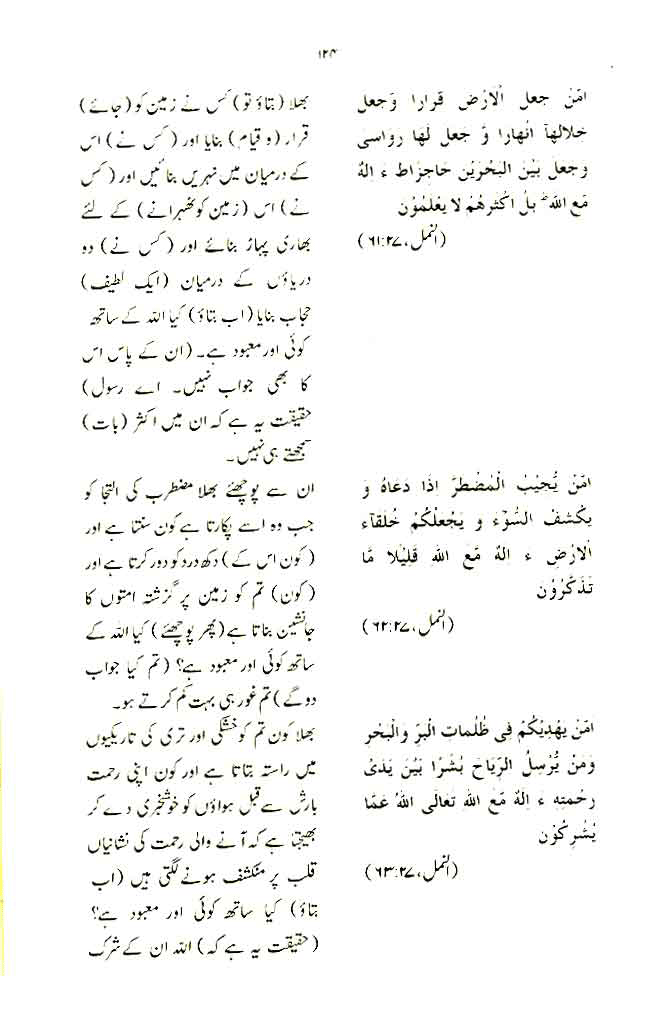 ۱۲۴
امّنْ جعل الْارْض قرارا وَّجعل
خلالهآ انْهارا وَّ جعل لها رواسی
وجعل بیْن الْبحْریْن حاجزاط ءَ الٰهٌ
مّع اللّٰه ؕ بلْ اکْثرهُمْ لا یعْلمُوْن
(النمل، ۲۷:۶۱)
امّنْ یُّجیْبُ الْمُضْطرَّ اذا دعاهُ و
یکْشفُ السُّوْٓءَ و یجْعلُکُمْ خُلفآءَ
الْارْض ءَ الٰهٌ مَّعَ اللّٰه قلیْلًا مَّا
تذکَّرُوْن
(النمل، ۲۷:۶۲)
امّنْ یهْدیْکُمْ فیْ ظُلُمات الْبرّ والْبحْر
وَمَنْ یُّرْسلُ الرّیاحَ بُشْرًا بیْن یدَیْ
رحْمته ءَ الٰهٌ مّع اللّٰه تعَالَی اللّٰهُ عَمَّا
یُشْرکُوْن
(النمل، ۲۷:۶۳)
بھلا (بتاؤ تو) کس نے زمین کو (جائے)
قرار (و قیام) بنایا اور (کس نے) اس
کے درمیان میں نہریں بنائیں اور (کس
نے) اس (زمین کو ٹھہرانے) کے لئے
بھاری پہاڑ بنائے اور (کس نے) دو
دریاؤں کے درمیان (ایک لطیف)
حجاب بنایا (اب بتاؤ) کیا اللہ کے ساتھ
کوئی اور معبود ہے۔ (ان کے پاس اس
کا بھی جواب نہیں۔ اے رسول)
حقیقت یہ ہے کہ ان میں اکثر (بات)
سمجھتے ہی نہیں۔
ان سے پوچھئے بھلا مضطرب کی التجا کو
جب وہ اسے پکارتا ہے کون سنتا ہے اور
(کون اس کے) دکھ درد کو دور کرتا ہے اور
(کون) تم کو زمین پر گزشتہ امتوں کا
جانشین بناتا ہے (پھر پوچھئے) کیا اللہ کے
ساتھ کوئی اور معبود ہے؟ (تم کیا جواب
دو گے) تم غور ہی بہت کم کرتے ہو۔
بھلا کون تم کو خشکی اور تری کی تاریکیوں
میں راستہ بتاتا ہے اور کون اپنی رحمت
بارش سے قبل ہواؤں کو خوشخبری دے کر
بھیجتا ہے کہ آنے والی رحمت کی نشانیاں
قلب پر منکشف ہونے لگتی ہیں (اب
بتاؤ) کیا ساتھ کوئی اور معبود ہے؟
(حقیقت یہ ہے کہ) اللہ ان کے شرک